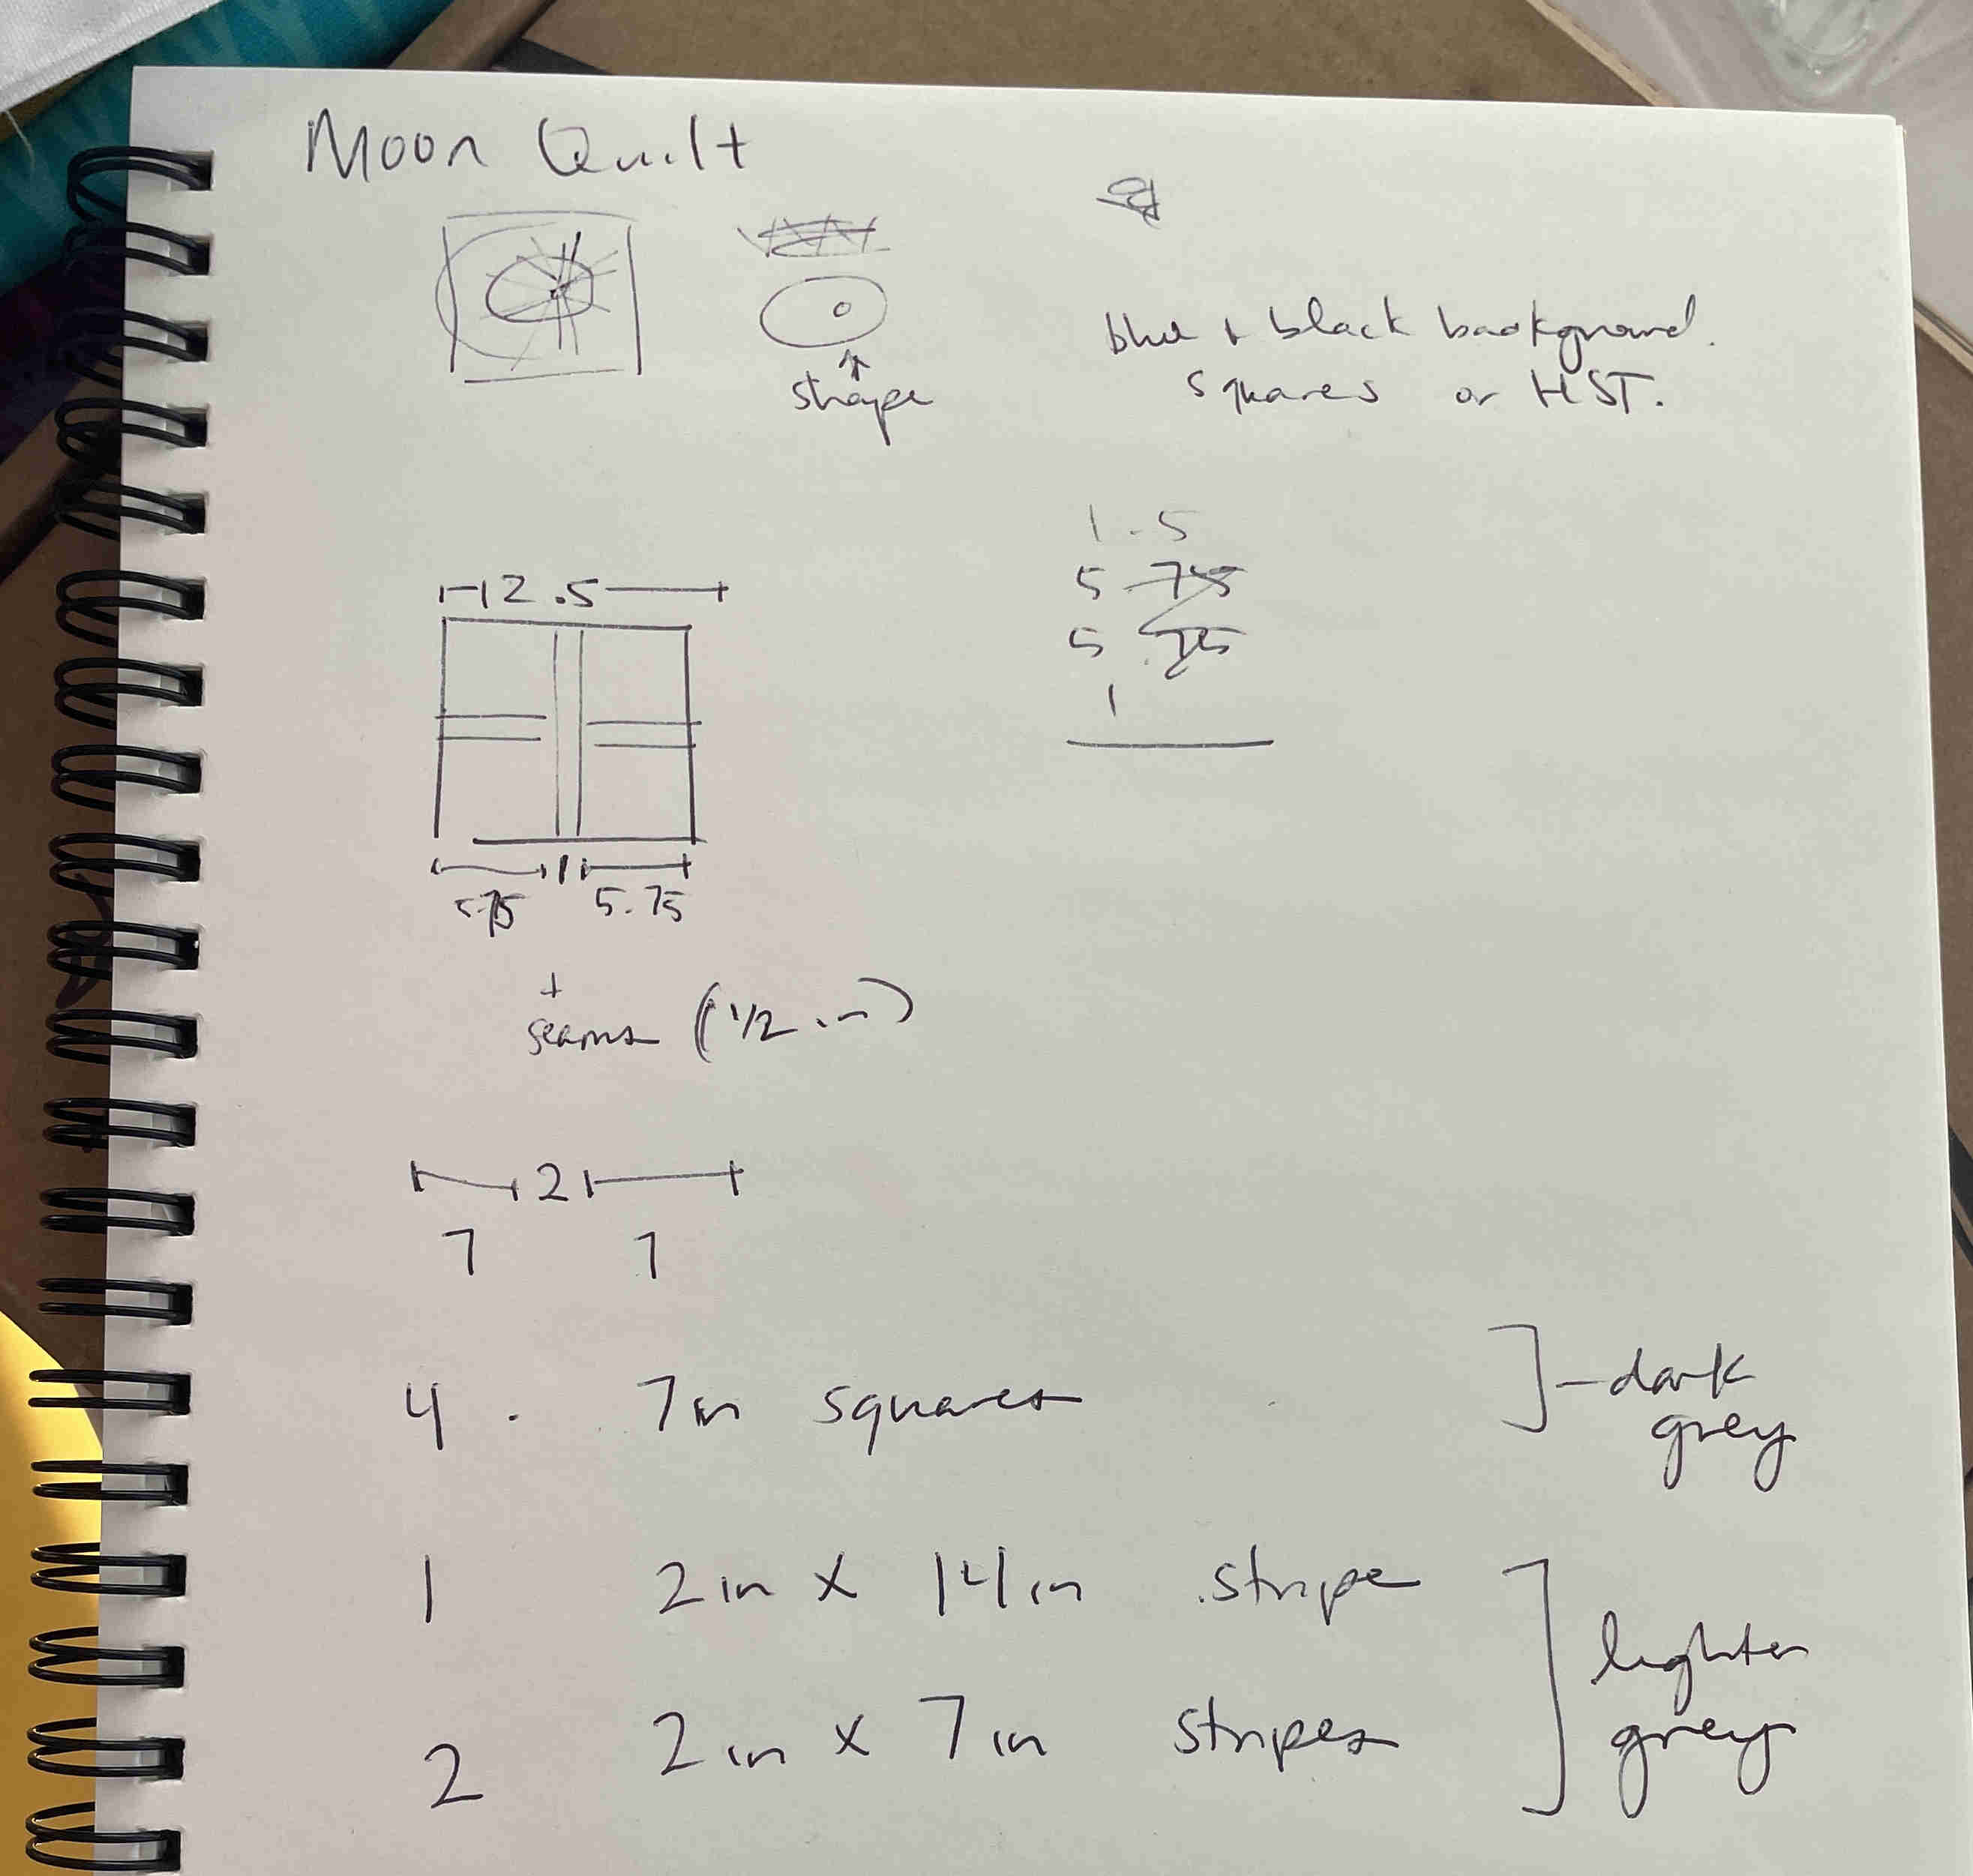 Moon Quilt
shape
blue + black background.
squares or HST.
12.5
1.5
5.75
5.75
1
5.75 1 5.75
+
seams (1/2 in)
2
7 7
4 7in squares
dark
grey
1 2in x 14in stripe
2 2in x 7in stripes
lighter
grey